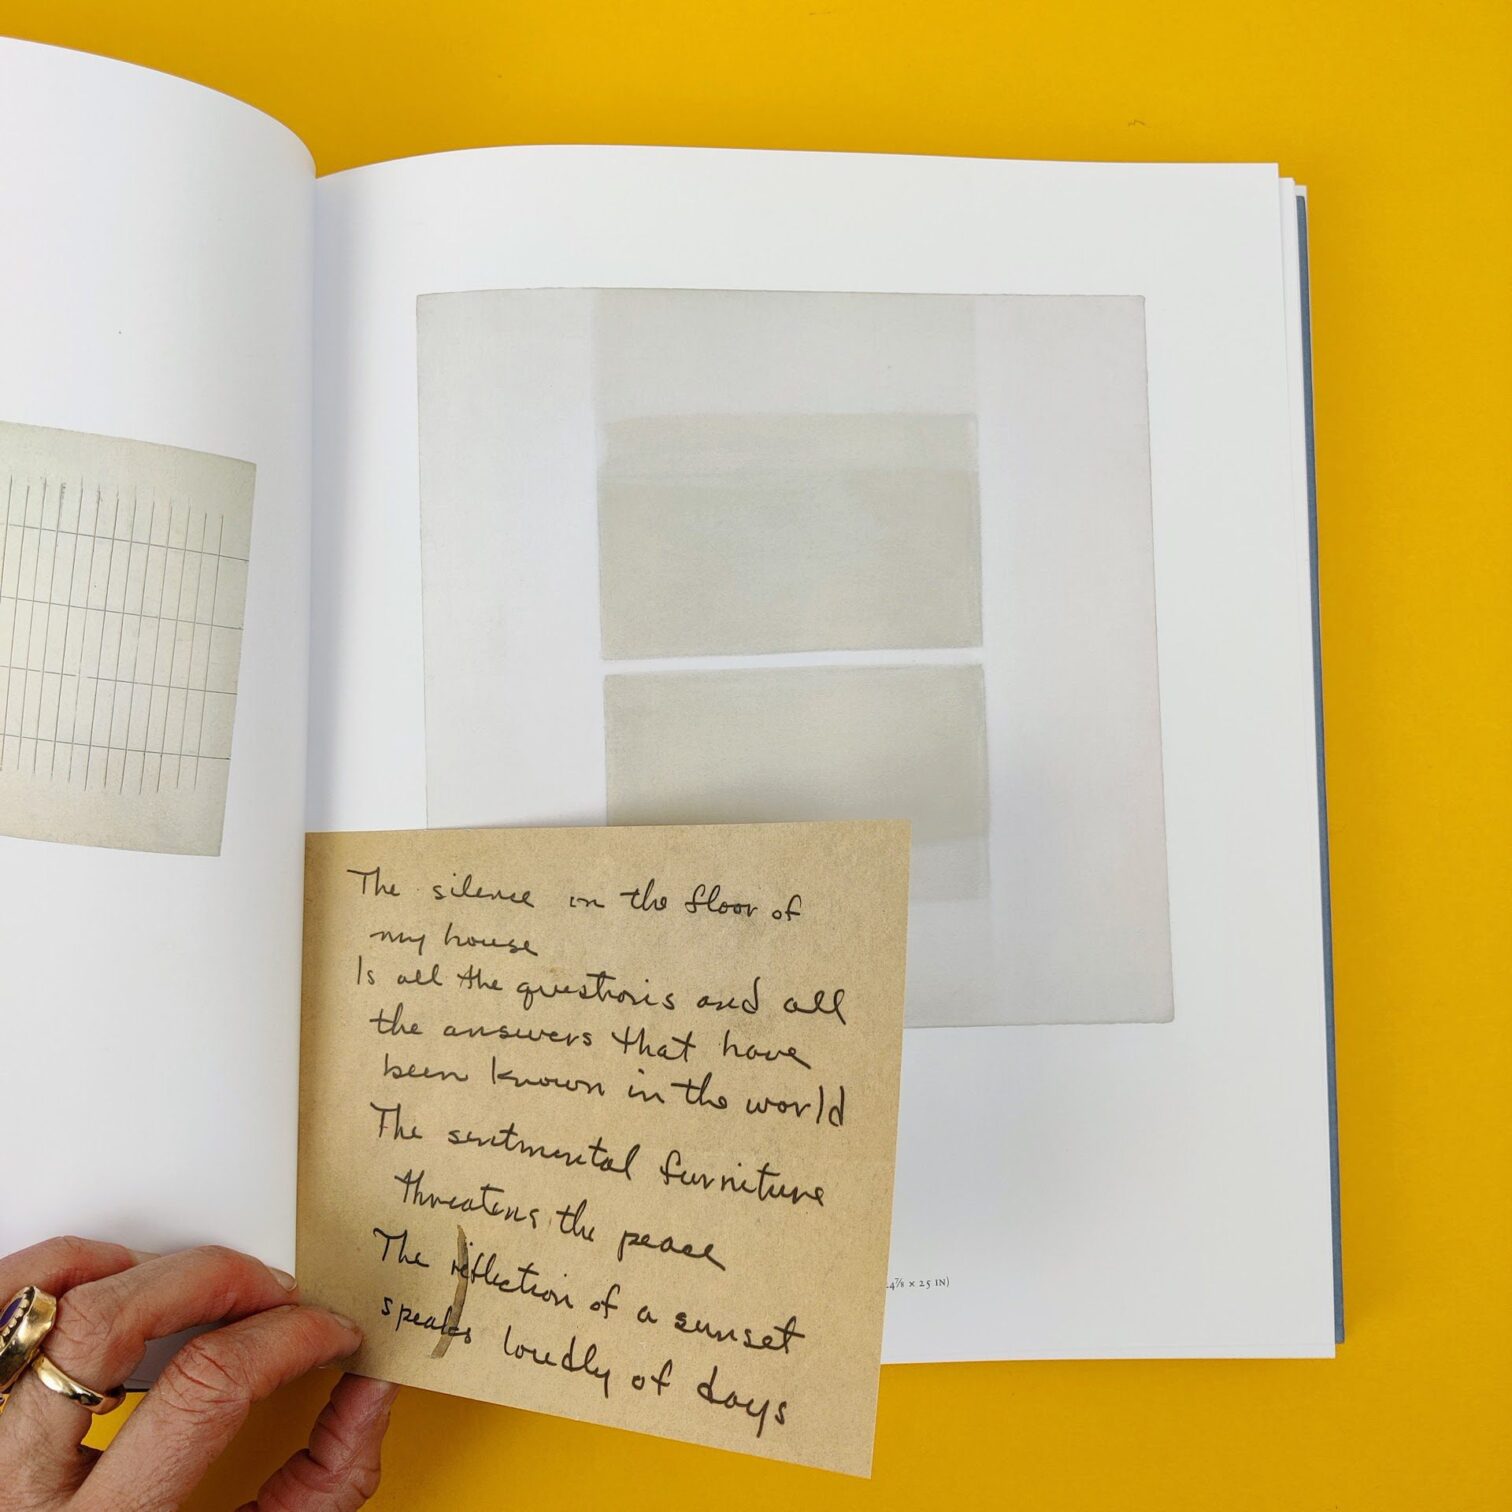 The silence in the floor of
my house
Is all the questions and all
the answers that have
been known in the world
The sentmental furniture
threatens the peace
The reflection of a sunset
speaks loudly of days
4⅞ × 25 IN)